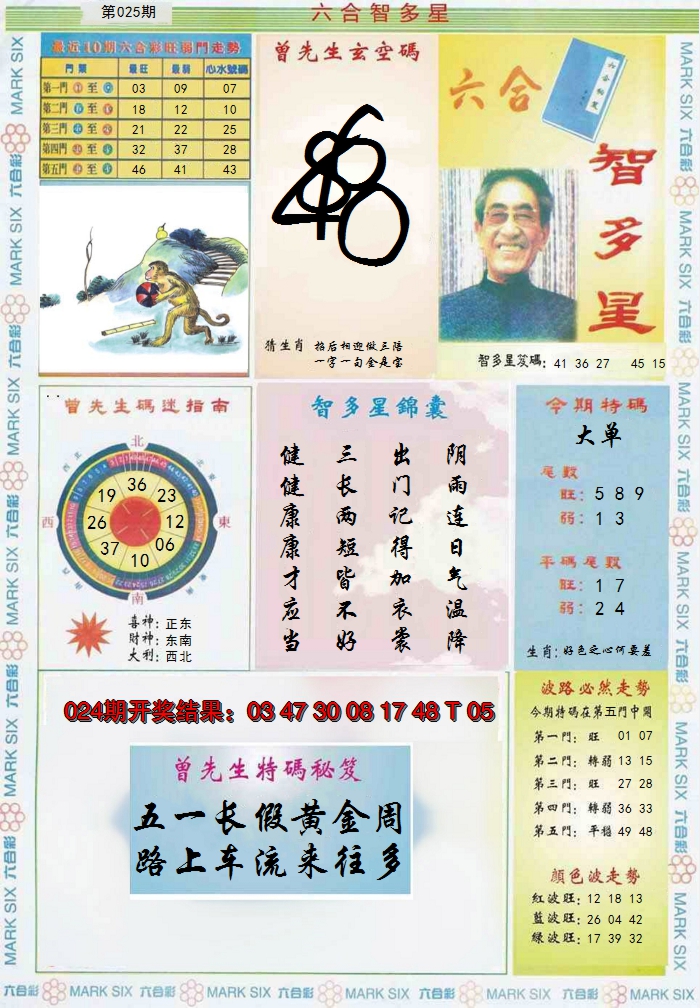 第025期
六合智多星
最近10期六合彩旺弱門走勢
門類 最旺 最弱 心水號碼
第一門 至 03 09 07
第二門 至 18 12 10
第三門 至 21 22 25
第四門 至 32 37 28
第五門 至 46 41 43
曾先生玄空碼
猜生肖 招后相迎做三陪
一字一句金是宝
六合
智多星
智多星笈碼：41 36 27 45 15
曾先生碼迷指南
北
西
東
南
36
23
12
06
10
37
26
19
喜神：正东
財神：东南
大利：西北
智多星錦囊
阴雨连日气温降
出门记得加衣裳
三长两短皆不好
健健康康才应当
今期特碼
大单
尾数
旺：5 8 9
弱：1 3
平碼尾数
旺：1 7
弱：2 4
生肖：好色之心何要羞
024期开奖结果：03 47 30 08 17 48 T 05
曾先生特碼秘笈
五一长假黄金周
路上车流来往多
波路必然走勢
今期特碼在第五門中開
第一門：旺 01 07
第二門：轉弱 13 15
第三門：旺 27 28
第四門：轉弱 36 33
第五門：平穩 49 48
顏色波走勢
紅波旺：12 18 13
藍波旺：26 04 42
綠波旺：17 39 32
MARK SIX 六合彩